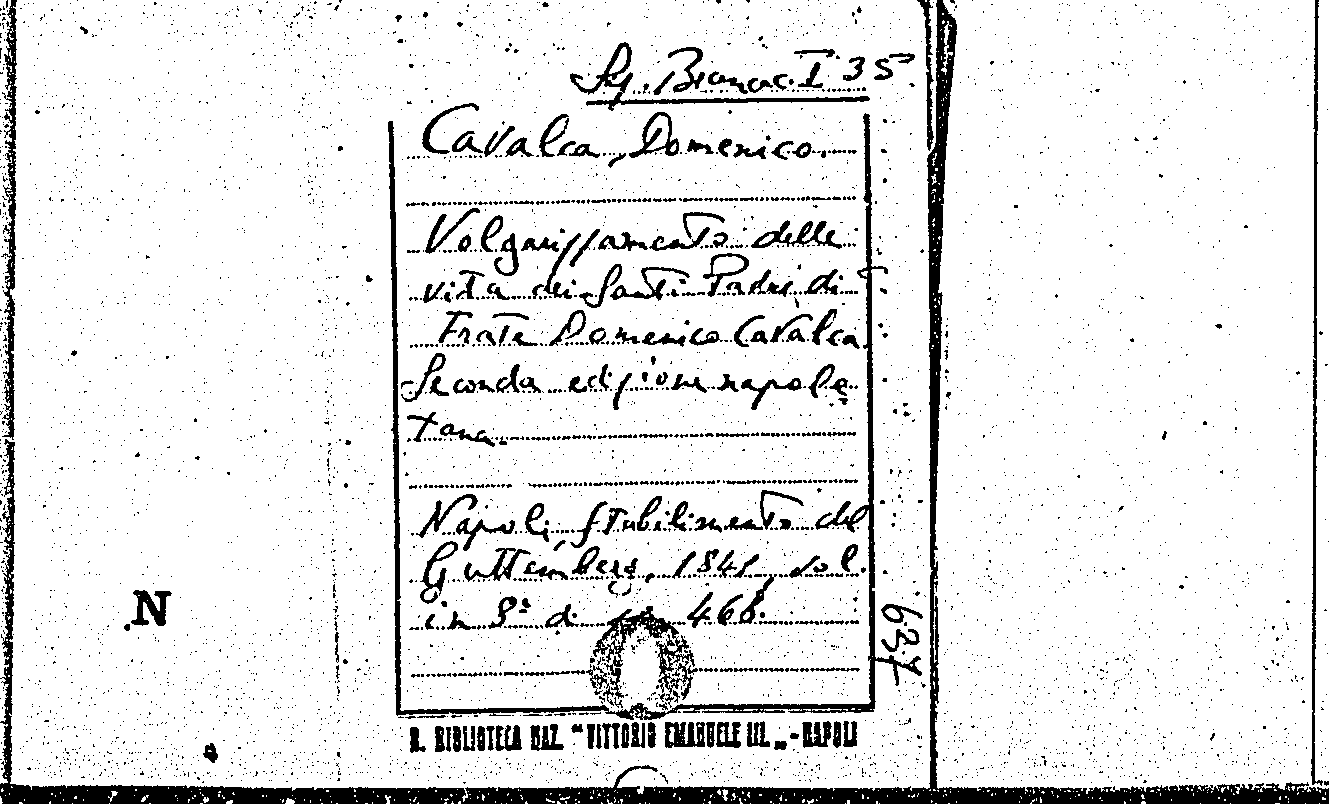 Sg. Brancac. I 35
Cavalca, Domenico.
Volgarizzamento delle
vita dei Santi Padri di
Frate Domenico Cavalca.
Seconda edizione napole
tana.
Napoli, Stabilimento del
Guttemberg, 1841, vol.
in 8º di pp 468.
637
N
R. BIBLIOTECA NAZ. "VITTORIO EMANUELE III. „ - NAPOLI